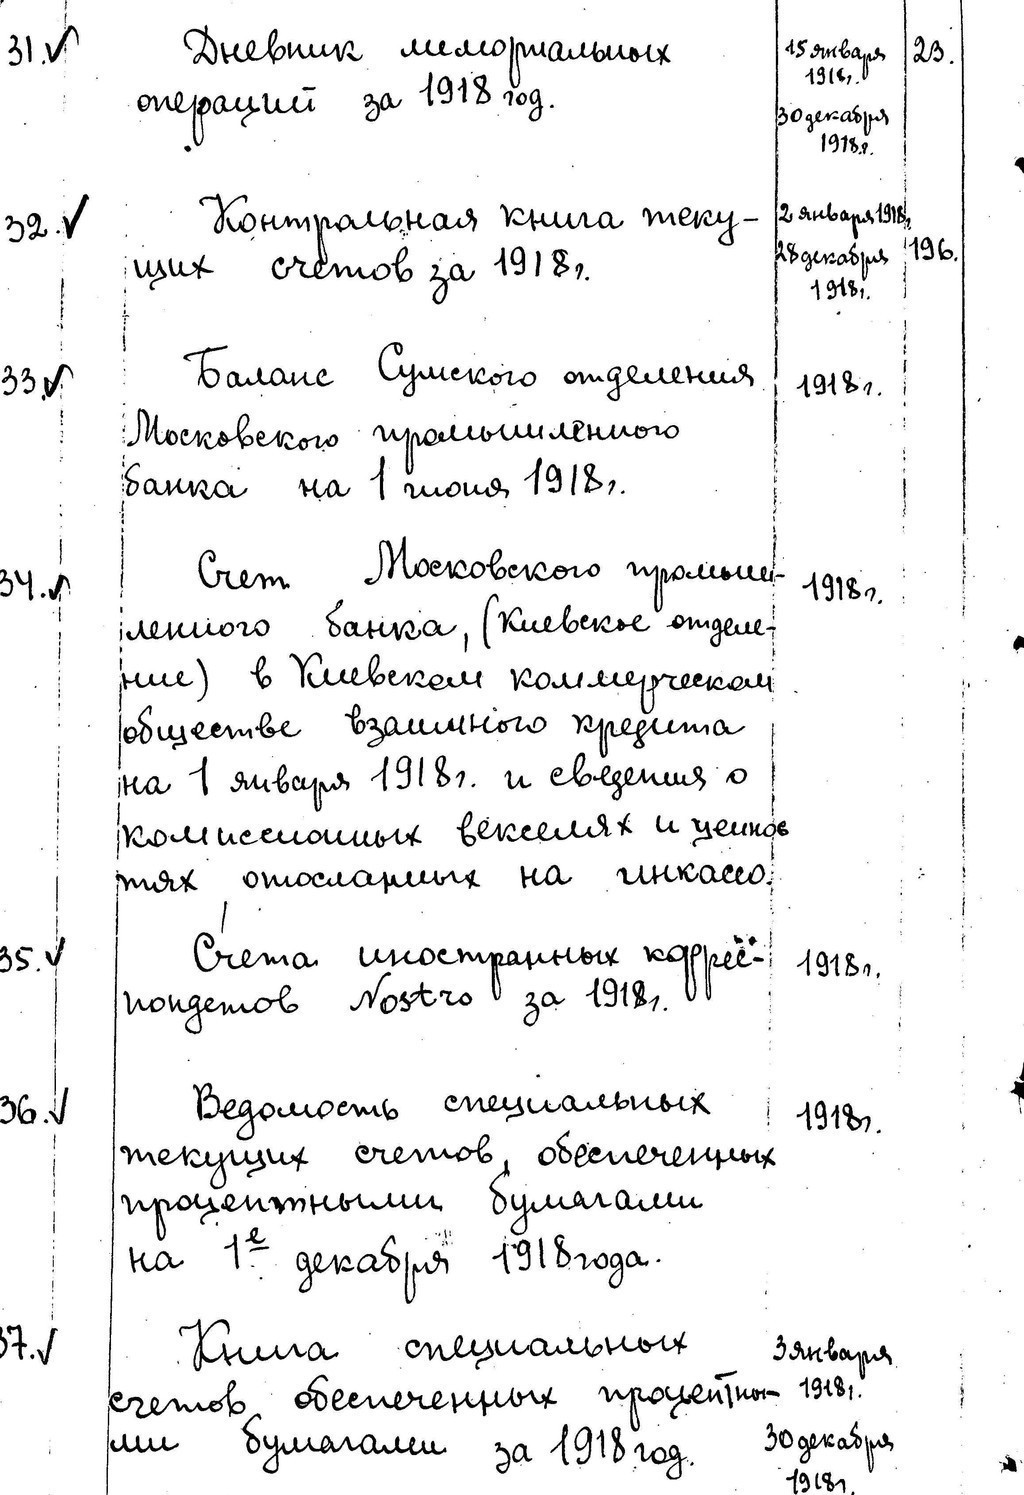 31. Дневник мемориальных 15 января 23.
1918г.
операций за 1918 год.
30 декабря
1918г.
32. Контрольная книга теку- 2 января 1918г.
щих счетов за 1918г. 28 декабря 196.
1918г.
33. Баланс Сумского отделения 1918г.
Московского промышленного
банка на 1 июня 1918г.
34. Счет Московского промыш- 1918г.
ленного банка, (Киевское отделе-
ние) в Киевском коммерческом
обществе взаимного кредита
на 1 января 1918г. и сведения о
комиссионных векселях и ценнос
тях отосланных на инкассо.
35. Счета иностранных коррес- 1918г.
пондетов Nostro за 1918г.
36. Ведомость специальных 1918г.
текущих счетов, обеспеченных
процентными бумагами
на 1е декабря 1918 года.
37. Книга специальных 3 января
счетов обеспеченных процентны- 1918г.
ми бумагами за 1918 год. 30 декабря
1918г.